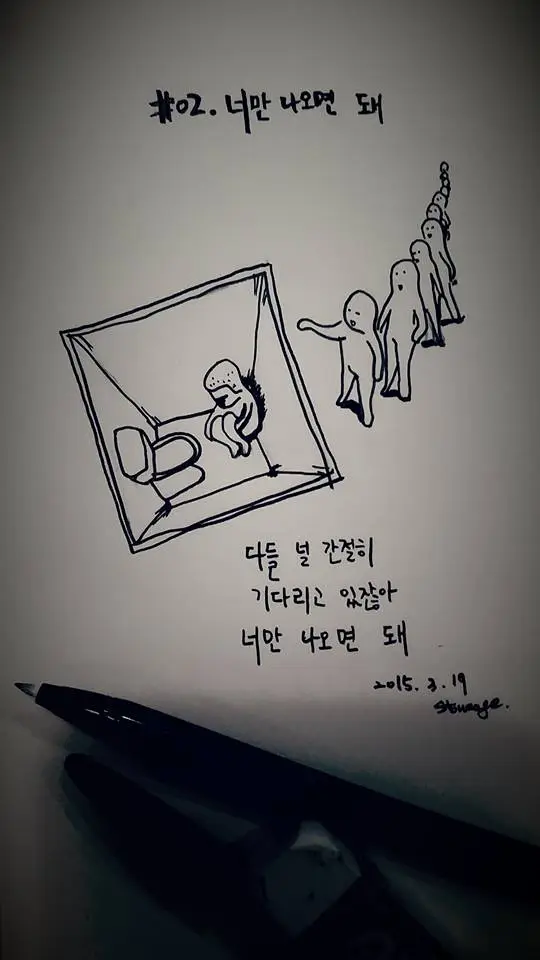 #02. 너만 나오면 돼
다들 널 간절히
기다리고 있잖아
너만 나오면 돼
2015. 3. 19